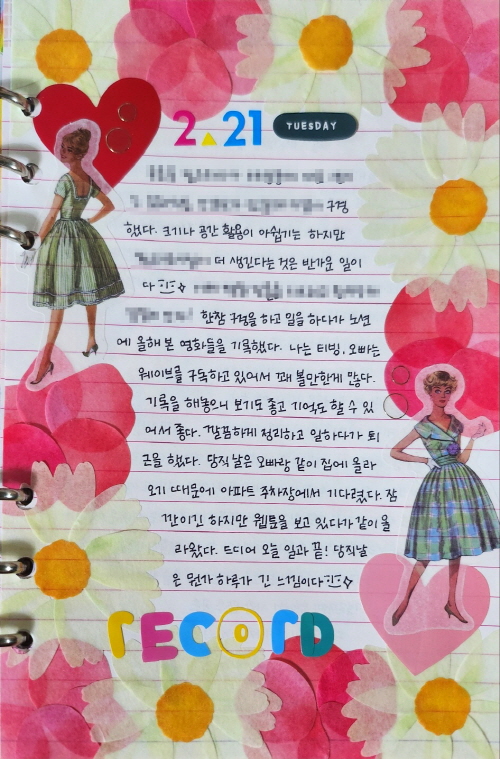 2.21 TUESDAY
구경
했다. 크기나 공간 활용이 아쉽기는 하지만
더 생긴다는 것은 반가운 일이
다
한참 구경을 하고 일을 하다가 노션
에 올해 본 영화들을 기록했다. 나는 티빙, 오빠는
웨이브를 구독하고 있어서 꽤 볼만한게 많다.
기록을 해놓으니 보기도 좋고 기억도 할 수 있
어서 좋다. 깔끔하게 정리하고 일하다가 퇴
근을 했다. 당직날은 오빠랑 같이 집에 올라
오기 때문에 아파트 주차장에서 기다렸다. 잠
깐이긴 하지만 웹툰을 보고 있다가 같이 올
라왔다. 드디어 오늘 일과 끝! 당직날
은 뭔가 하루가 긴 느낌이다
RECORD